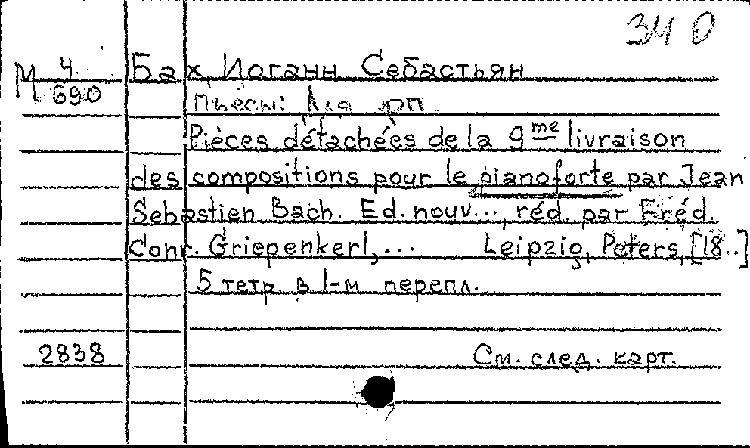 34 0
М 4
690
Бах, Иоганн Себастьян
Пьесы: Для фп.
Pièces détachées de la 9me livraison
des compositions pour le pianoforte par Jean
Sebastien Bach. Ed. nouv..., réd. par Fréd.
Conr. Griepenkerl,... Leipzig, Peters, [18..]
5 тетр в 1-м перепл.
2838
См. след. карт.